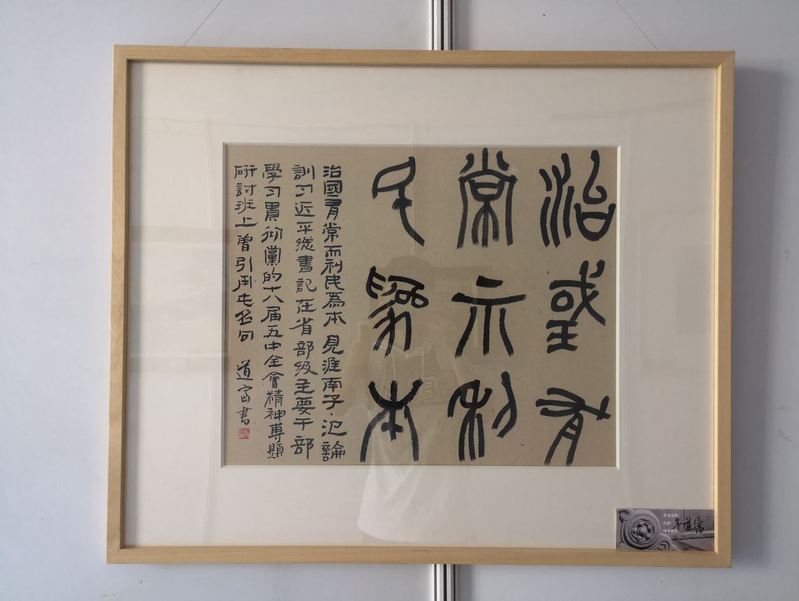 治國有
常而利
民為本
治國有常而利民為本 見淮南子·氾論
訓习近平總書記在省部级主要干部
學习貫彻黨的十八届五中全會精神專題
研討班上曾引用此名句 道富書